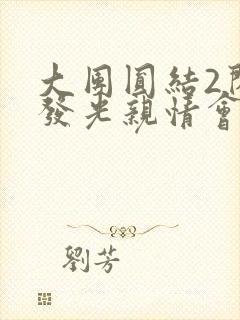 大團圓結2閃
發光親情會
劉芳